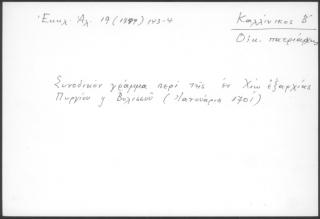 Ἐκκλ. Ἀλ. 19 (1899) 143-4
Καλλίνικος Β'
Οἰκ. πατριάρχης
Συνοδικὸν γράμμα περὶ τῆς ἐν Χίῳ ἐξαρχίας
Πυργίου ἢ Βολισσοῦ (Ἰανουάριος 1701)